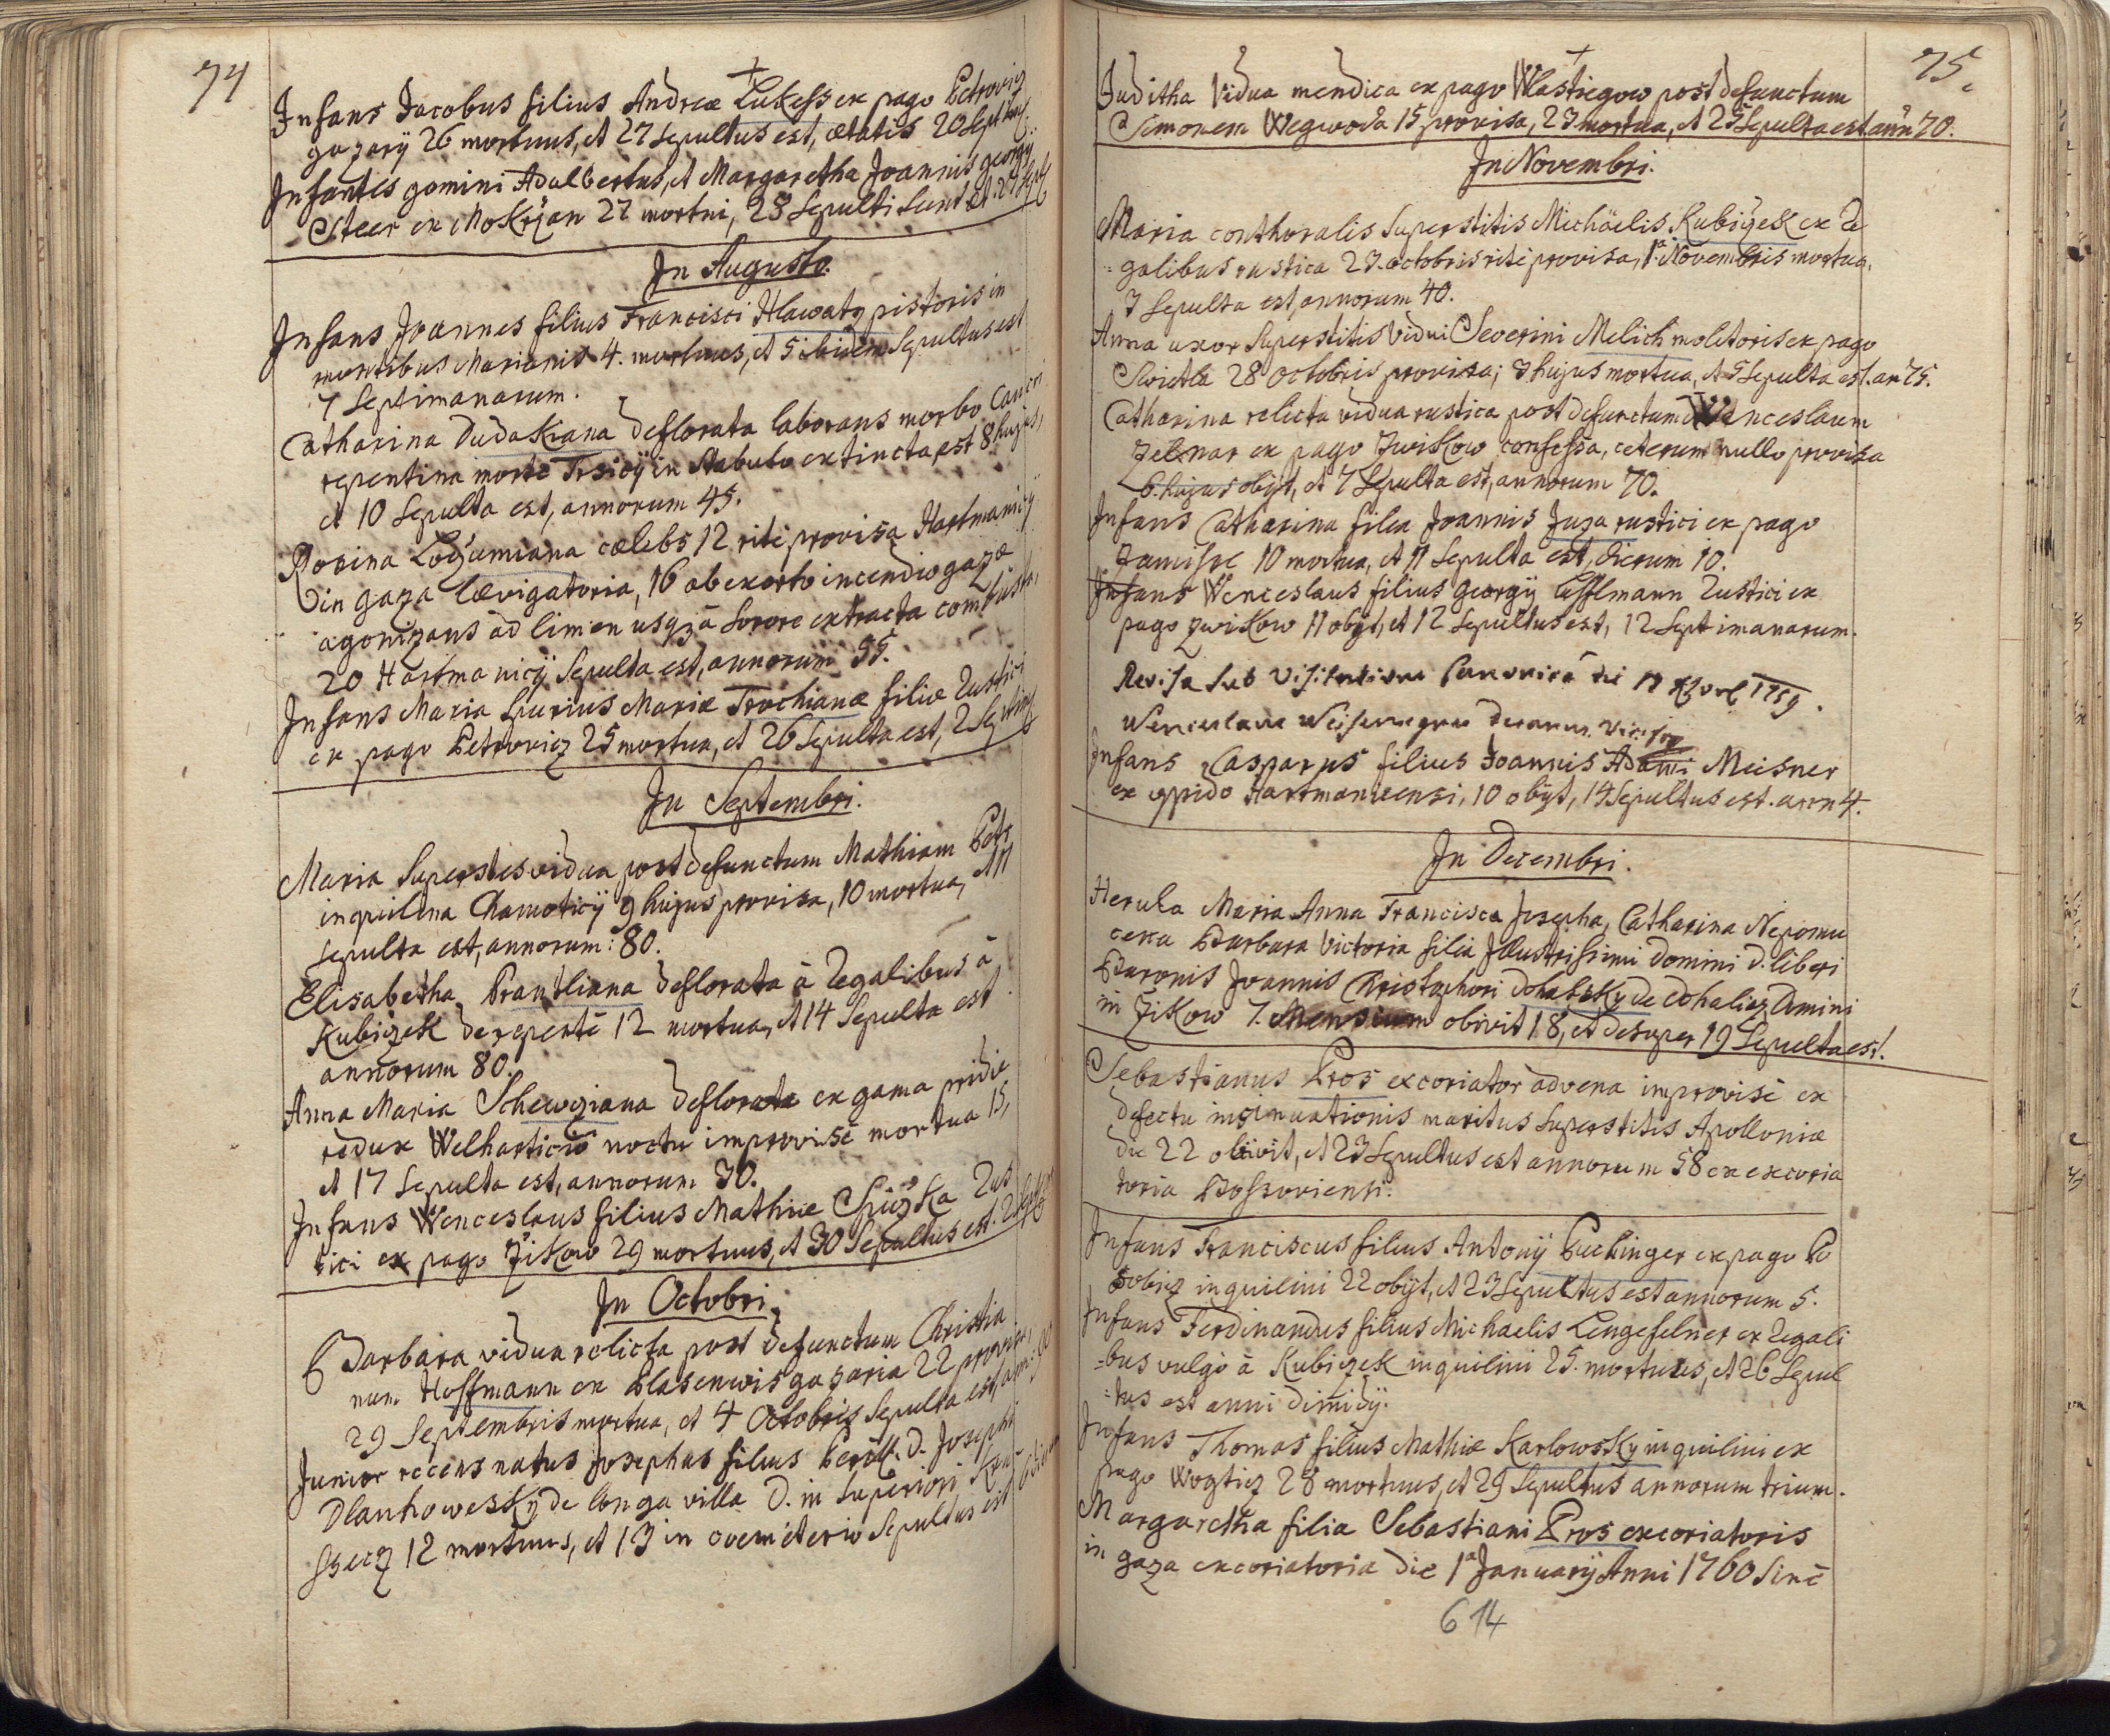 74
Infans Jacobus filius Andreæ Lukess ex pago Petrovicz
gazarij 26 mortuus, et 27 sepultus est, ætatis 20 Sept
Infantes gemini Adalbertus, et Margaretha Joannis georgij
Steer ex Mokrzan 27 mortui, 28 Sepulti sunt æt.
In Augusto.
Infans Joannes filius Francisci Hlawaty pistoris in
montibus Marianis 4. mortuus, et 5 ibidem Sepultus est
7 Septimanarum.
Catharina Dudakiana deflorata laborans morbo Cancri
repentina morte in Stabulo extincta est 8 hujus,
et 10 Sepulta est, annorum 45.
Rosina cælebs 12 rite provisa Hartmanicij
in gaza lævigatoria, 16 ob exorto incendio gazæ
agonizans ad limen usq3 à Sorore extracta combusta,
20 Hartmanicij Sepulta est, annorum 55.
Infans Maria Spurius Mariæ Trochianæ filiæ Rustici
ex pago Petrovicz 25 mortua, et 26 Sepulta est, 2 Septim
In Septembri.
Maria Superstes vidua post defunctum Mathiam
inquilina Chamoticij 9 hujus provisa, 10 mortua, et 11
sepulta est, annorum: 80.
Elisabetha Prantliana deflorata à Regalibus à
Kubiczek derepente 12 mortua, et 14 Sepulta est
annorum 80.
Anna Maria deflorata ex gama pridie
redux Welharticio noctu improvise mortua 15,
et 17 Sepulta est, annorum 30.
Infans Wenceslaus filius Mathiæ Rus
tici ex pago Zikow 29 mortuus, et 30 Sepultus est.
In Octobri.
Barbara vidua relicta post defunctum Christia
num Hoffmann ex gazaria 22 provisa,
29 Septembris mortua, et 4 Octobris Sepulta est,
Junior recens natus Josephus filius D. Josephi
Dlauhowesky de longa villa D. in Superiori
12 mortuus, et 13 in cœmeterio Sepultus est
75
Juditha Vidua mendica ex pago Wlastiegow post defunctum
Simonem Wegwoda 15 provisa, 23 mortua, et 25 Sepulta est ann 70.
In Novembri.
Maria conthoralis Superstitis Michäelis Kubiczek ex Re
galibus rustica 23. octobris rite provisa, 1ª Novembris mortua,
3 Sepulta est, annorum 40.
Anna uxor Superstitis Vidui Severini Melich molitoris ex pago
Swietla 28 octobris provisa; 3 hujus mortua, et 5 Sepulta est. an 75.
Catharina relicta vidua rustica post defunctum Wenceslaum
Zelnar ex pago Zwikow confessa, ceterum nullo provisa
6. hujus obijt, et 7 Sepulta est, annorum 70.
Infans Catharina filia Joannis Juza rustici ex pago
10 mortua, et 11 Sepulta est, dierum 10.
Infans Wenceslaus filius Georgij Rustici ex
pago Zwikow 11 obijt, et 12 Sepultus est, 12 Septimanarum.
Revisa sub Visitatione Canonica die 17 1759.
Infans Casparus filius Joannis Adami Meisner
ex oppido Hartmanicensi, 10 obijt, 14 Sepultus est. ann 4.
In Decembri.
Herula Maria Anna Francisca Josepha, Catharina Nepomu
cena Barbara Victoria filia Illustrissimi Domini D. liberi
Baronis Joannis Christophori Dohalsky de Dohalicz Domini
in Zikow 7. Mensium obivit 18, et desuper 19 Sepulta est.
Sebastianus Pros excoriator advena improvise ex
defectu insinuationis maritus Superstitis Apolloniæ
die 22 obivit, et 23 Sepultus est annorum 58 ex excoria
toria
Infans Franciscus filius Antonij Puchinger ex pago Po
sobicz inquilini 22 obijt, et 23 Sepultus est annorum 5.
Infans Ferdinandus filius Michaelis Lengefelner ex Regali
=bus vulgò à Kubiczek inquilini 25. mortuus, et 26 Sepul
=tus est anni dimidij.
Infans Thomas filius Mathiæ Karlowsky inquilini ex
pago Wogticz 28 mortuus, et 29 Sepultus annorum trium.
Margaretha filia Sebastiani Pros excoriatoris
in gaza excoriatoria die 1ª Januarij Anni 1760 Sine
614